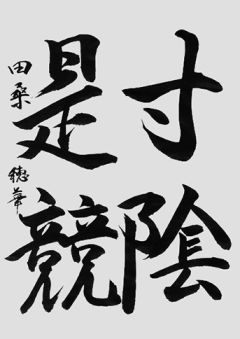 寸陰
是競
田桑穂華